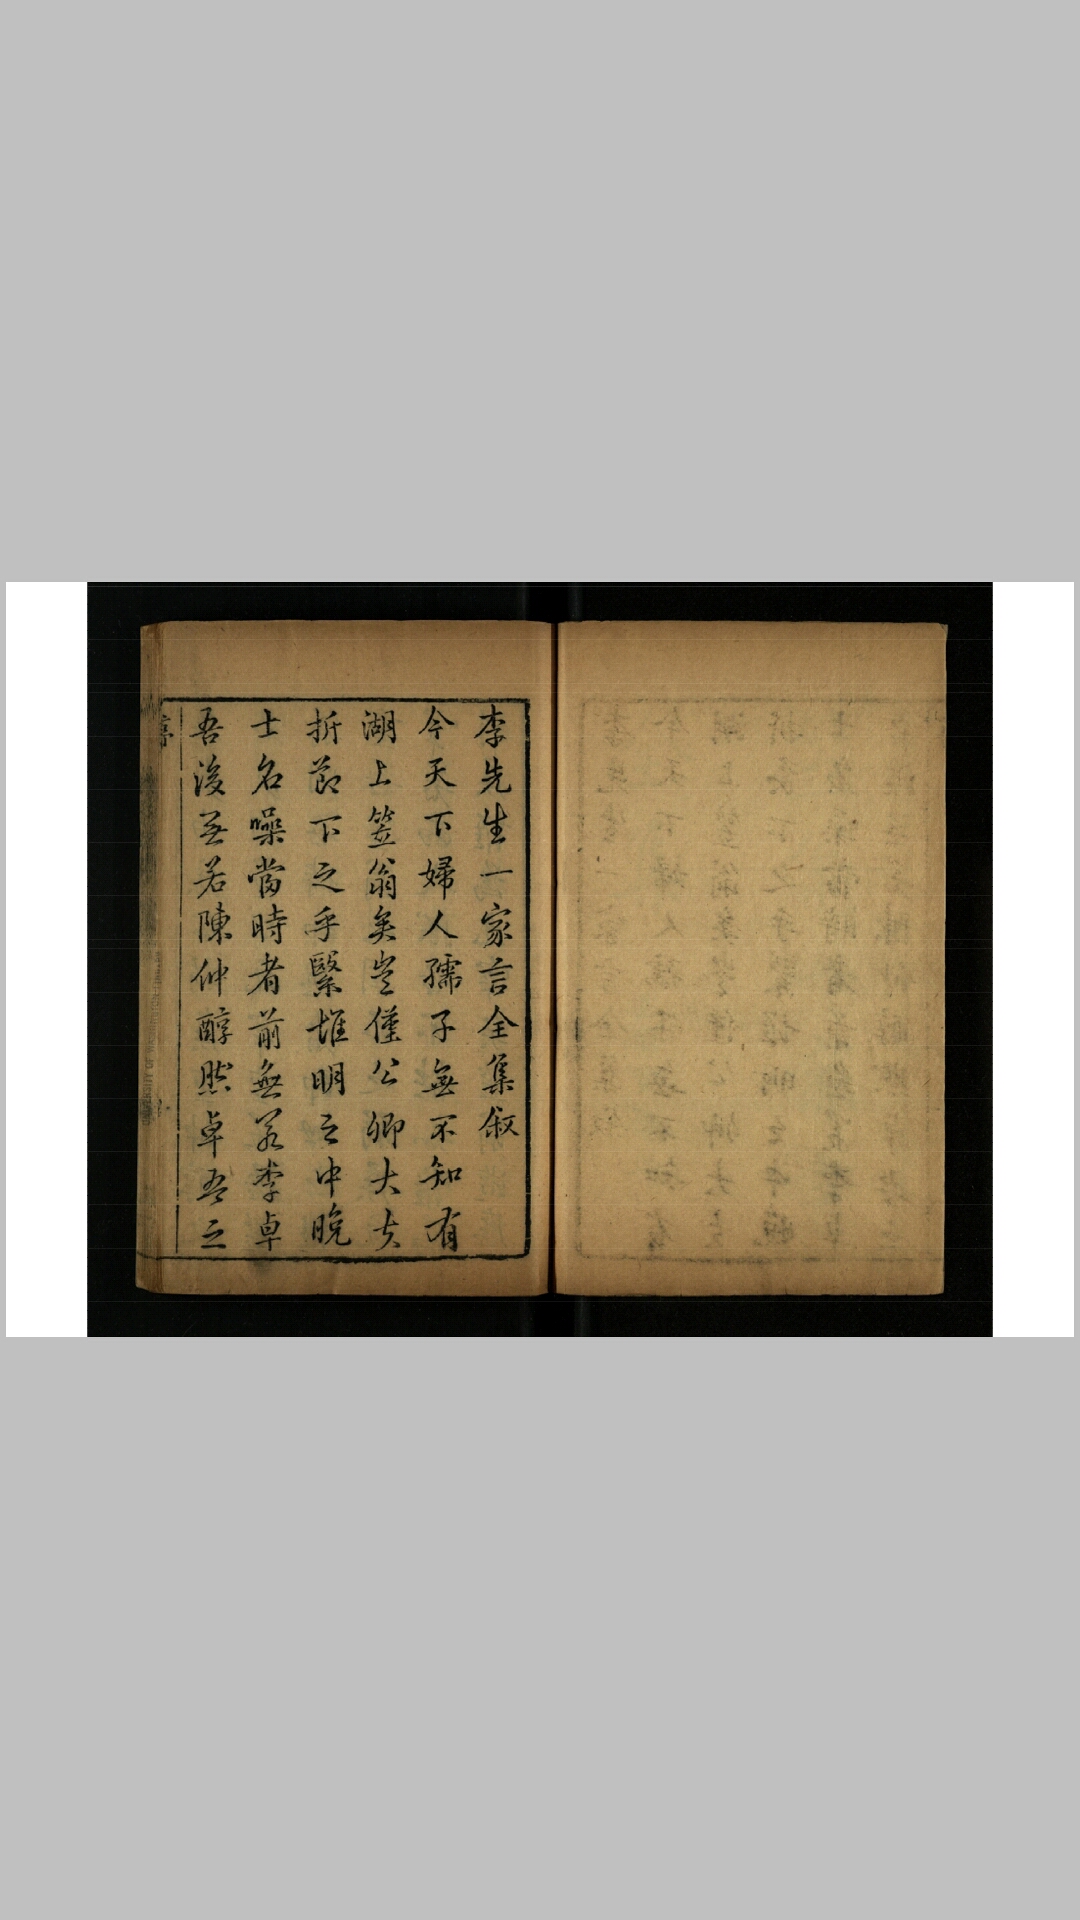 李先生一家言全集叙
今天下婦人孺子無不知有
湖上笠翁矣豈僅公卿大夫
折節下之乎緊惟明之中晚
士名噪當時者前無若李卓
吾後无若陳仲醇然卓吾之
序